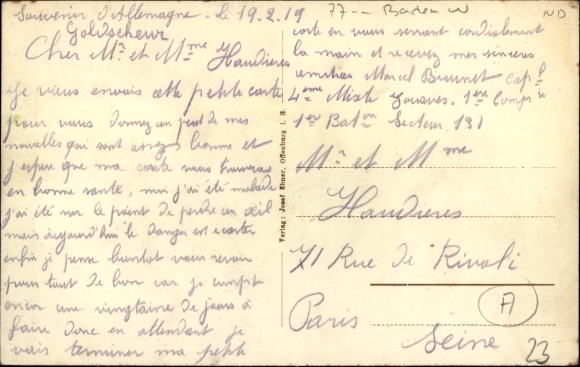 Souvenir d'Allemagne. Le 19.2.19
Goldscheur
Cher Mr et Mme Haudieres
Je vous envois cette petite carte
pour vous donner un peut de mes
nouvelles qui sont assez bonne et
j'espere que ma carte vous trouvera
en bonne santé, moi j'ai été malade
j'ai été sur le point de perdre un œil
mais aujourd'hui le danger est écarter
enfin je pense bientot vous revoir
pour tout de bon car je compt
encor une vingtaine de jours à
faire donc en attendant je
vais terminer ma petite
77-- Baden W
ND
carte en vous serrant cordialement
la main et recevez mes sinceres
amitiées Marcel Brunet Cap l
4eme Mixte Zouaves. 1ere Compie
1er Baton Secteur 131
Verlag: Josef Ebner, Offenburg i. B.
Mr et Mme
Haudieres
71 Rue de Rivoli
Paris
Seine
A
23